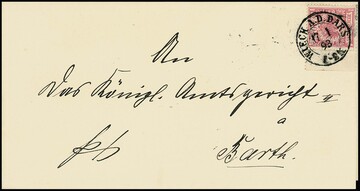 WIECK A. D. DARS
17 1
98
An
Das Königl. Amtsgericht
a
Barth.